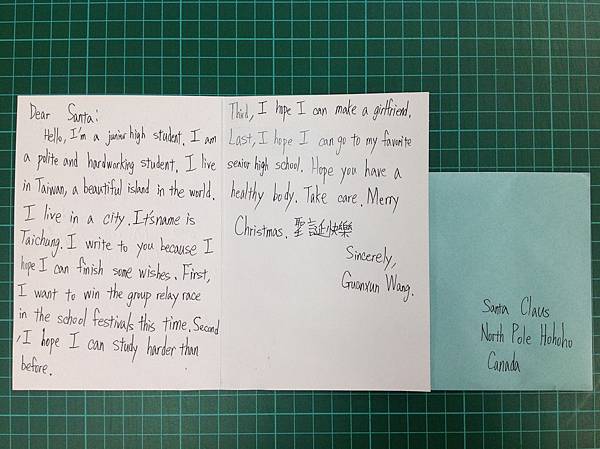 Dear Santa:
Hello, I'm a junior high student. I am
a polite and hardworking student. I live
in Taiwan, a beautiful island in the world.
I live in a city. It'sname is
Taichung. I write to you because I
hope I can finish some wishes. First,
I want to win the group relay race
in the school festivals this time. Second
, I hope I can study harder than
before.
Third, I hope I can make a girlfriend.
Last, I hope I can go to my favorite
senior high school. Hope you have a
healthy body. Take care. Merry
Christmas. 聖誕快樂
Sincerely,
Guanxun Wang.
Santa Claus
North Pole Hohoho
Canada